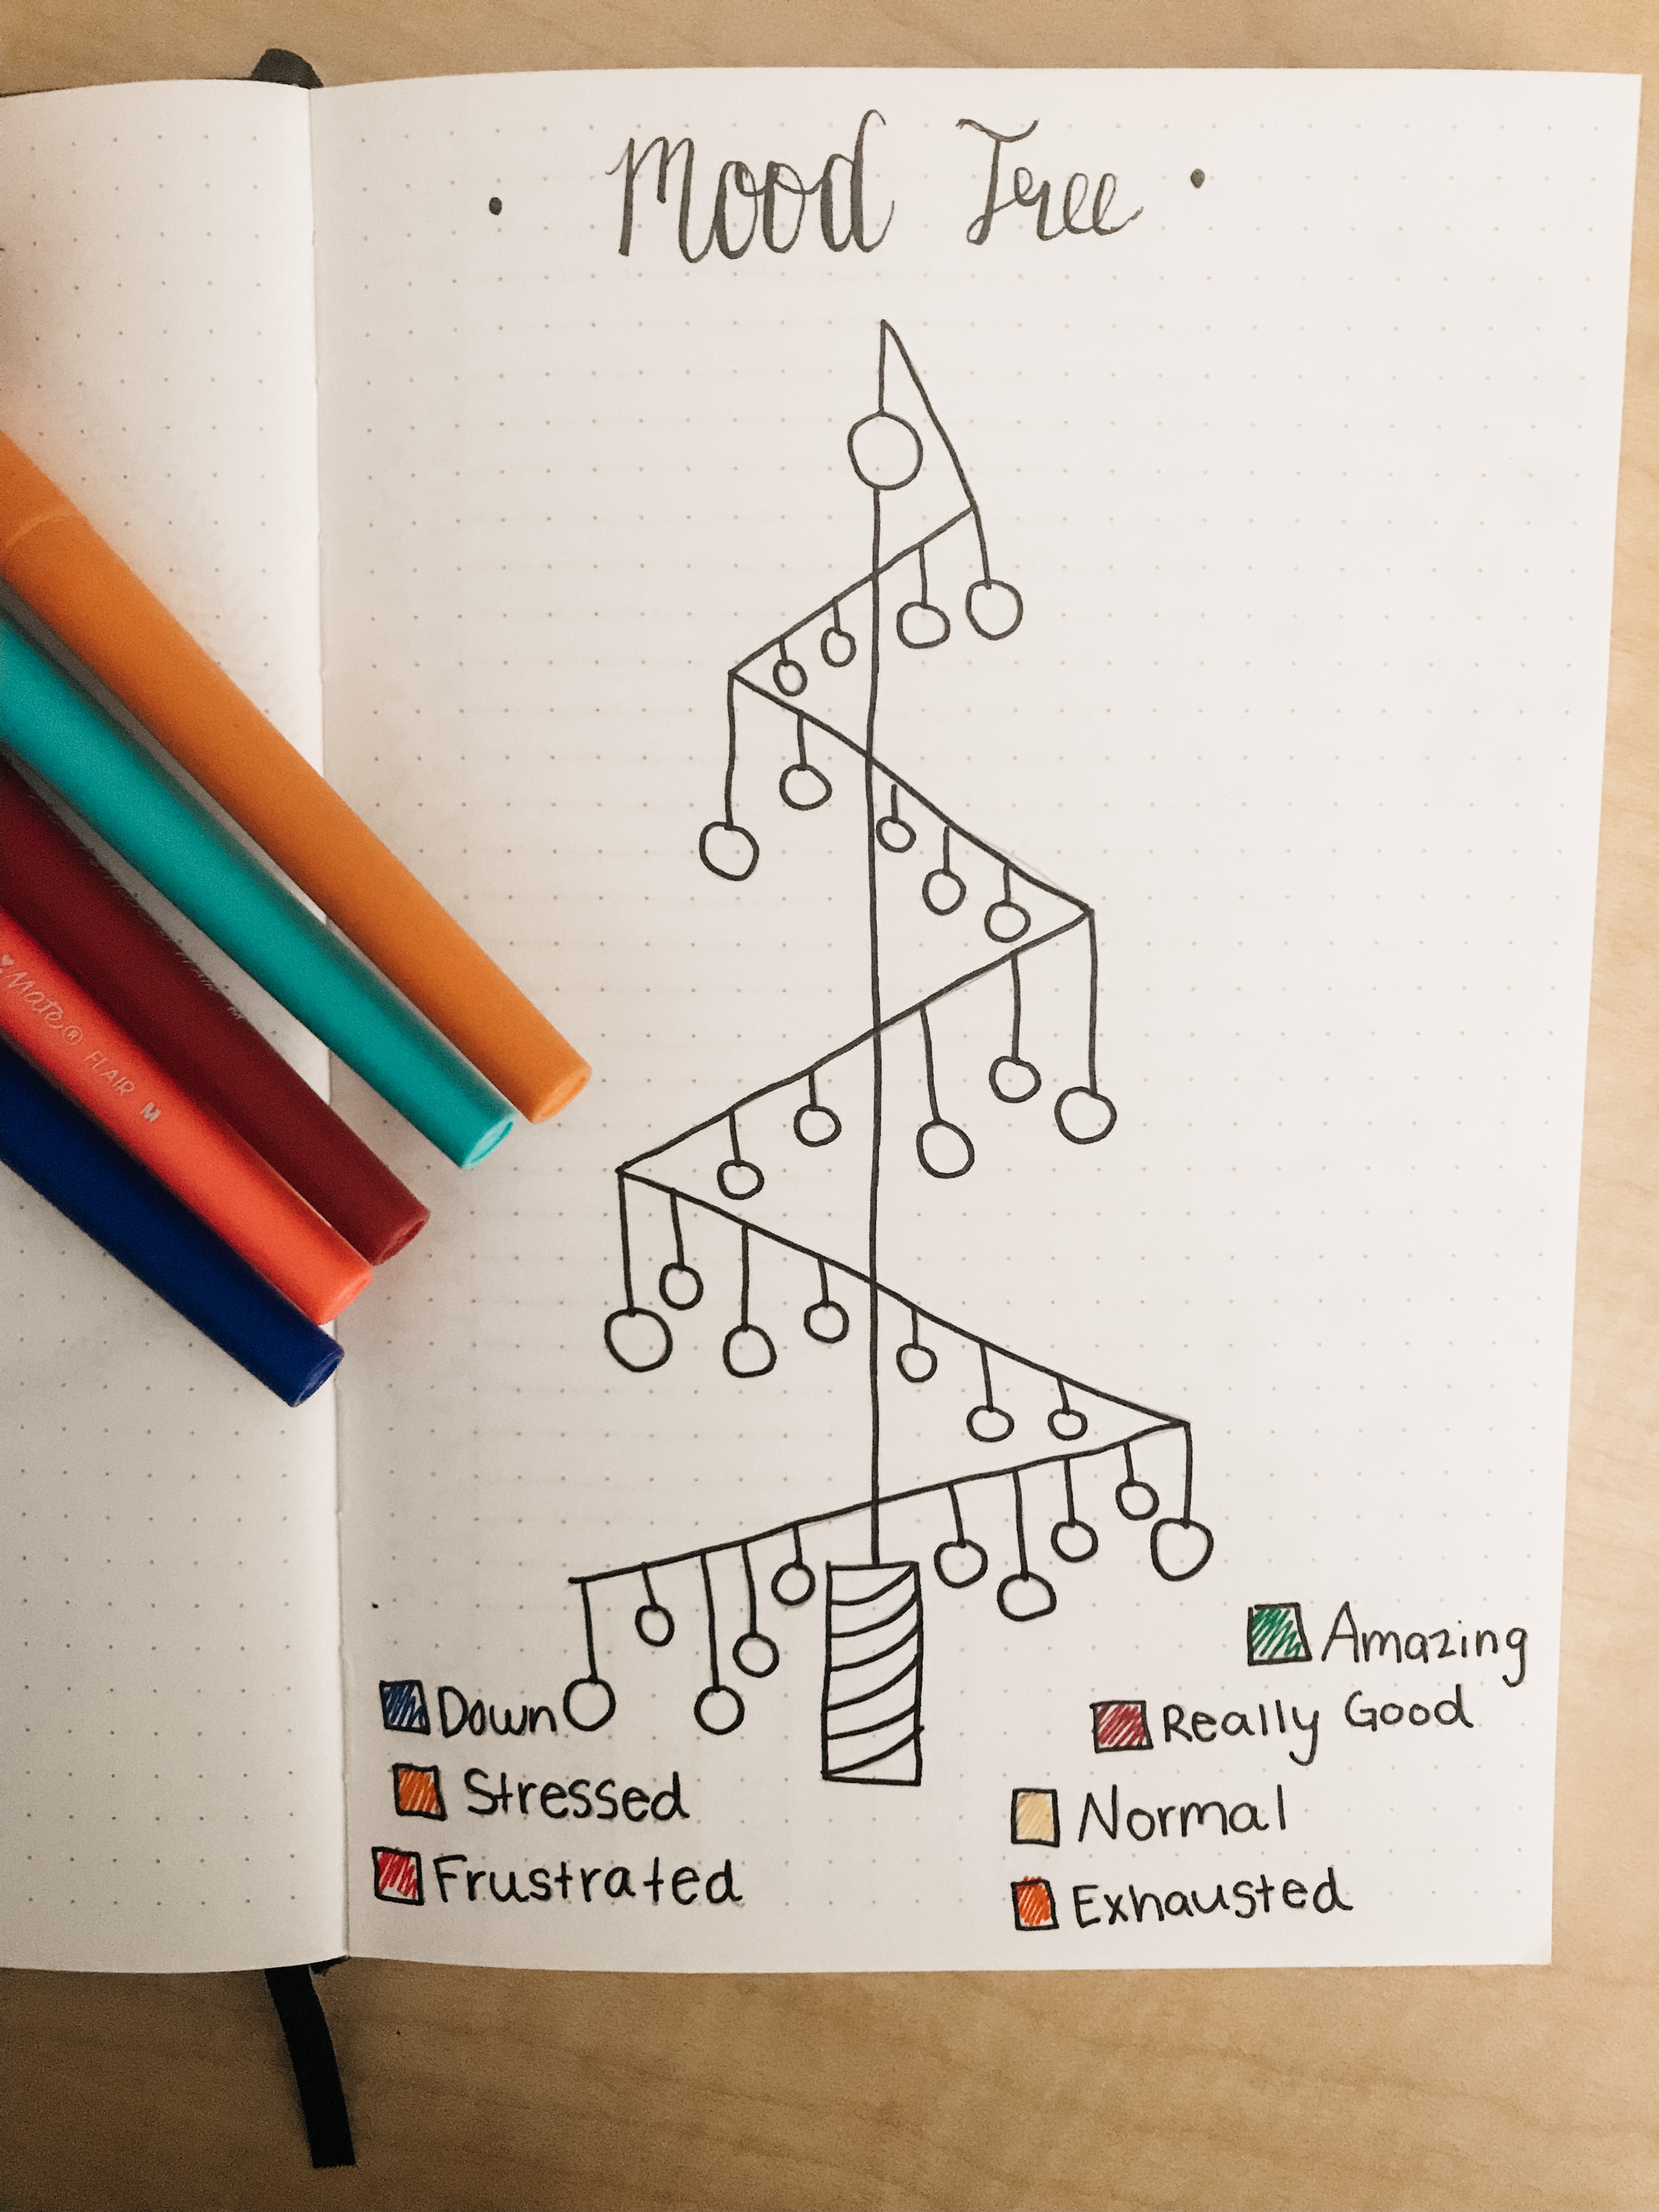 Mood Tree
Mate® FLAIR M
Amazing
Down
Really Good
Stressed
Normal
Frustrated
Exhausted